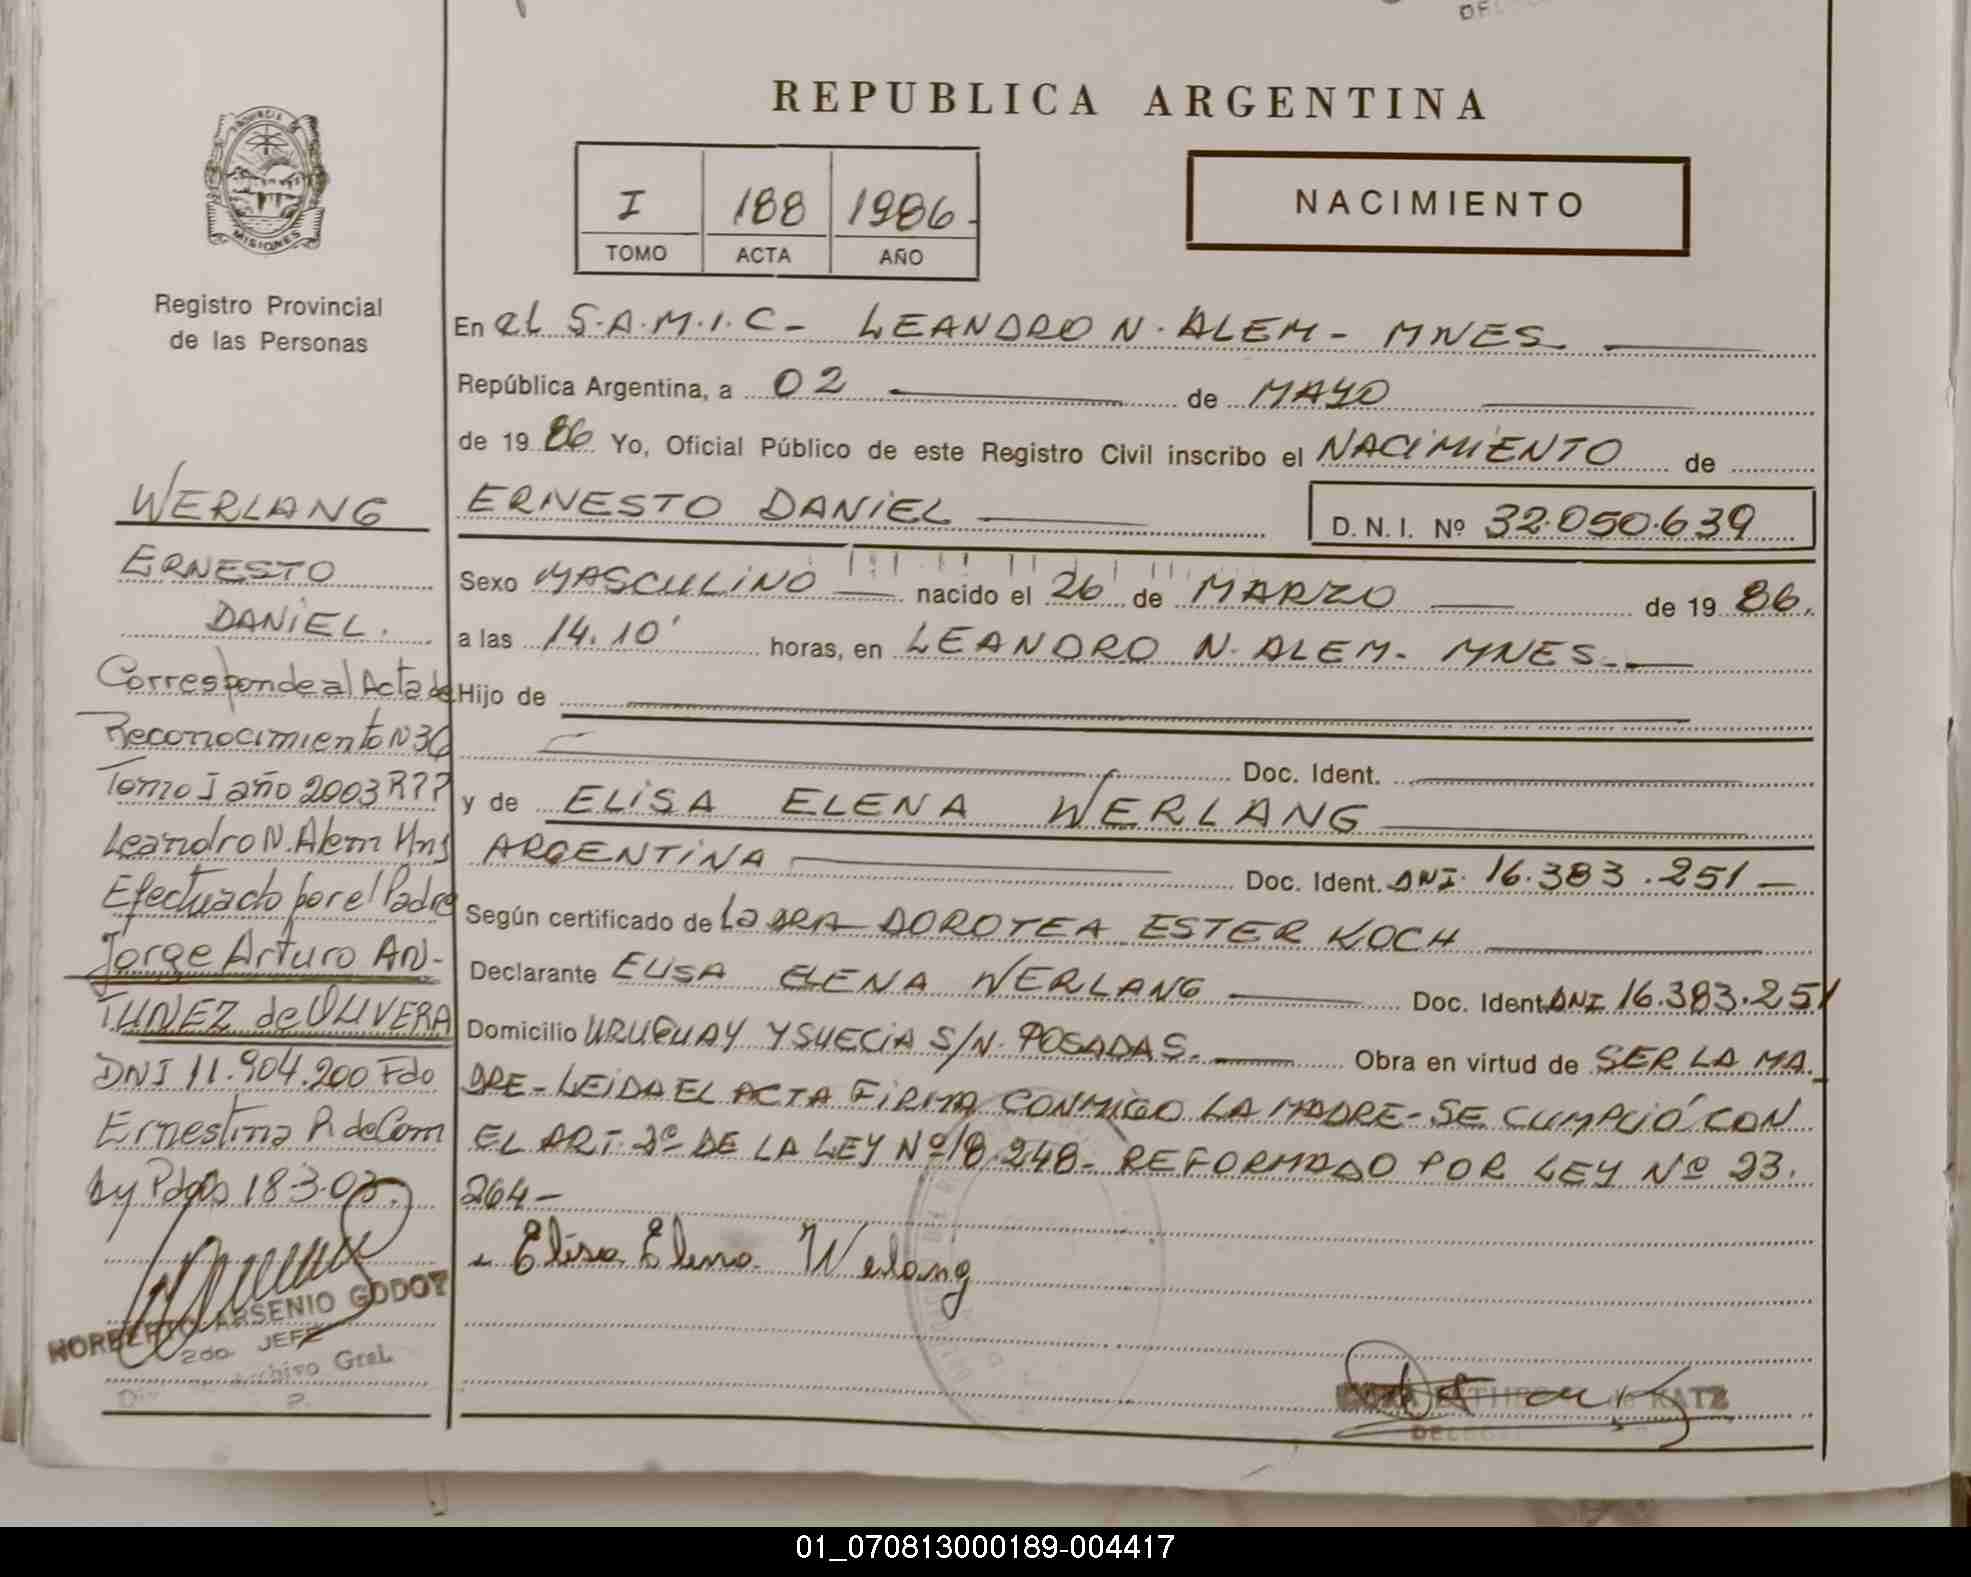 REPUBLICA ARGENTINA
PROVINCIA DE
MISIONES
Registro Provincial
de las Personas
I 188 1986-
TOMO ACTA AÑO
NACIMIENTO
En el S.A.M.I.C- LEANDRO N. ALEM- MNES
República Argentina, a 02 de MAYO
de 19 86 Yo, Oficial Público de este Registro Civil inscribo el NACIMIENTO de
ERNESTO DANIEL D.N.I. Nº 32.050.639
Sexo MASCULINO nacido el 26 de MARZO de 19 86.
a las 14.10' horas, en LEANDRO N. ALEM- MNES-
Hijo de
Doc. Ident.
y de ELISA ELENA WERLANG
ARGENTINA Doc. Ident. DNI. 16.383.251-
Según certificado de La DRA DOROTEA ESTER KOCH
Declarante ELISA ELENA WERLANG Doc. Ident. DNI 16.383.251
Domicilio URUGUAY Y SUECIA S/N. POSADAS. Obra en virtud de SER LA MA.
DRE- LEIDA EL ACTA FIRMA CONMIGO LA MADRE- SE CUMPLIÓ CON
EL ART. 2º DE LA LEY Nº 18.248- REFORMADO POR LEY Nº 23.
264-
Elisa Elena Werlang
KATZ
WERLANG
ERNESTO
DANIEL.
Corresponde al Acta de
Reconocimiento N 36
Tomo I año 2003 RPP
Leandro N. Alem Mns
Efectuado por el Padre
Jorge Arturo AN-
TUNEZ de OLIVERA
DNI 11.904.200 Fdo
Ernestina R. de Com
18-3-03.
NORBERTO ARSENIO GODOY
2do. JEFE
Archivo Gral.
01_070813000189-004417